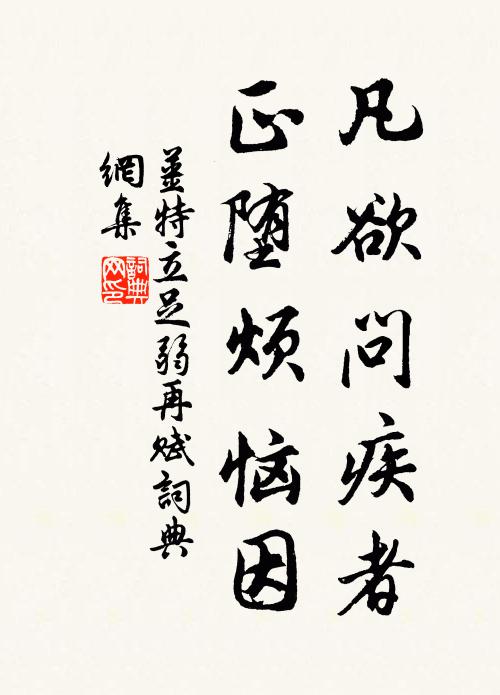 凡欲问疾者
正堕烦恼因
薑特立足弱再赋詞典
網集
詞典
网印